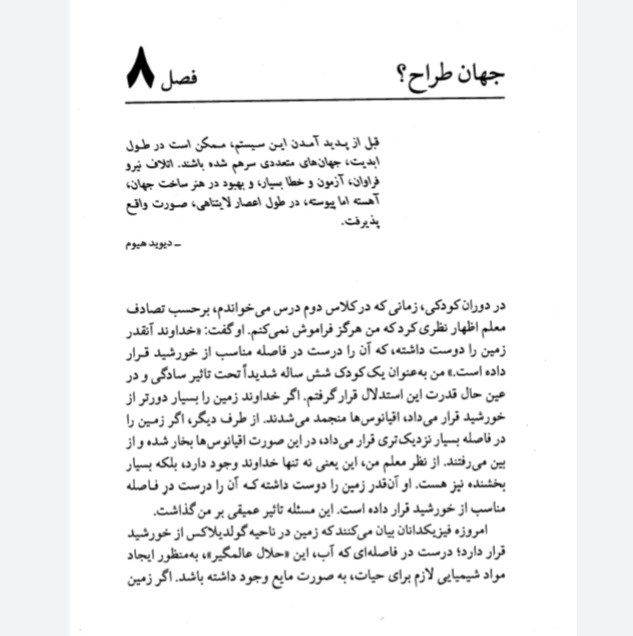 جهان طراح؟
فصل ۸
قبل از پدید آمدن این سیستم، ممکن است در طول
ابدیت، جهان‌های متعددی سرهم شده باشند. اتلاف نیرو
فراوان، آزمون و خطا بسیار، و بهبود در هنر ساخت جهان،
آهسته اما پیوسته، در طول اعصار لایتناهی، صورت واقع
پذیرفت.
ـ دیوید هیوم
در دوران کودکی، زمانی که در کلاس دوم درس می‌خواندم، برحسب تصادف
معلم اظهار نظری کرد که من هرگز فراموش نمی‌کنم. او گفت: «خداوند آنقدر
زمین را دوست داشته، که آن را درست در فاصله مناسب از خورشید قرار
داده است.» من به‌عنوان یک کودک شش ساله شدیداً تحت تاثیر سادگی و در
عین حال قدرت این استدلال قرار گرفتم. اگر خداوند زمین را بسیار دورتر از
خورشید قرار می‌داد، اقیانوس‌ها منجمد می‌شدند. از طرف دیگر، اگر زمین را
در فاصله بسیار نزدیک‌تری قرار می‌داد، در این صورت اقیانوس‌ها بخار شده و از
بین می‌رفتند. از نظر معلم من، این یعنی نه تنها خداوند وجود دارد، بلکه بسیار
بخشنده نیز هست. او آن‌قدر زمین را دوست داشته که آن را درست در فاصله
مناسب از خورشید قرار داده است. این مسئله تاثیر عمیقی بر من گذاشت.
امروزه فیزیکدانان بیان می‌کنند که زمین در ناحیه گولدیلاکس از خورشید
قرار دارد؛ درست در فاصله‌ای که آب، این «حلال عالمگیر»، به‌منظور ایجاد
مواد شیمیایی لازم برای حیات، به صورت مایع وجود داشته باشد. اگر زمین